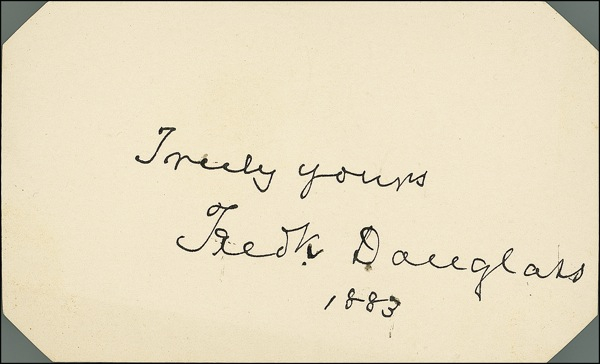 Truly yours
Fredk Douglass
1883